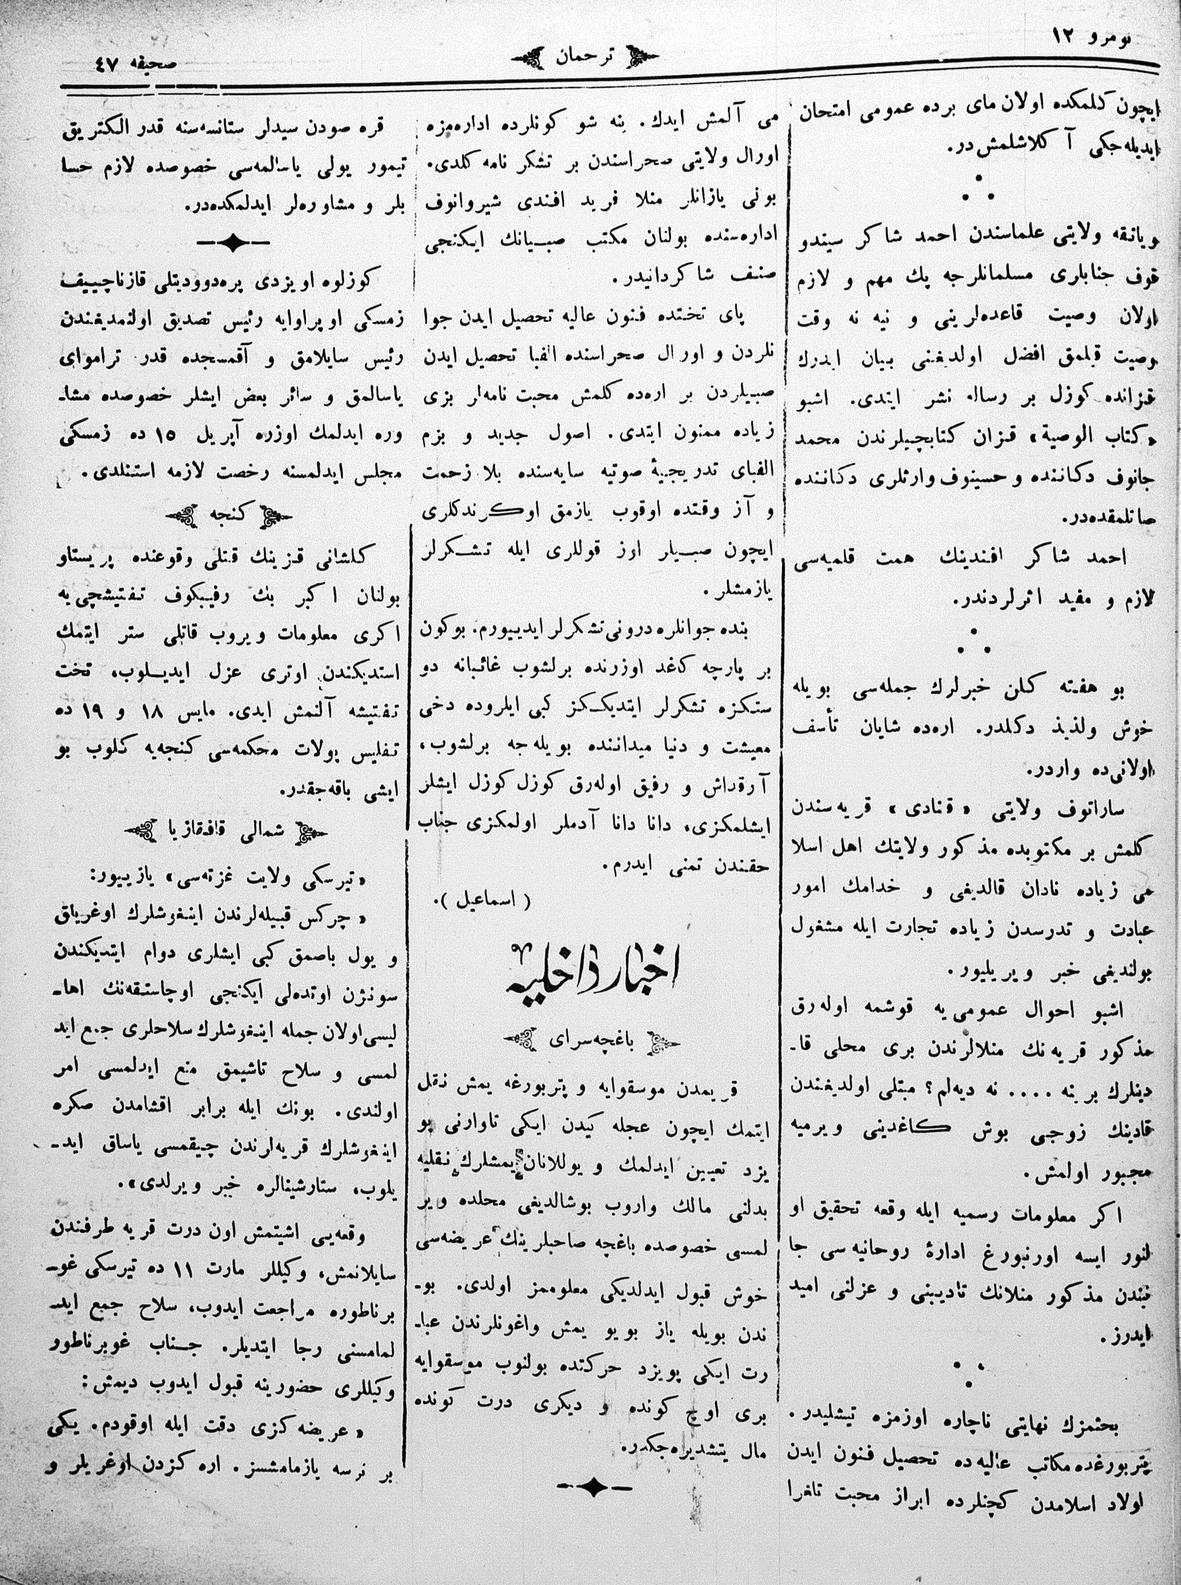 نومرو ١٢
ترجمان
صحیفه ٤٧
ایچون كلمكده اولان مای برده عمومی امتحان
ایدیله‌جكی آ كلاشلمش‌در.
ویاتقه ولایتی علماسندن احمد شاكر سیندو
قوف جنابلری مسلمانلرجه پك مهم و لازم
اولان وصیت قاعده‌لرینی و نیه نه وقت
وصیت قیلمق افضل اولدیغنی بیان ایدرك
قزانده كوزل بر رساله نشر ایتدی. اشبو
«كتاب الوصیة» قزان كتابچیلرندن محمد
جانوف دكاننده و حسینوف وارثلری دكاننده
صاتلمقده‌در.
احمد شاكر افندینك همت قلمیه‌سی
لازم و مفید اثرلردندر.
بو هفته كلن خبرلرك جمله‌سی بویله
خوش ولذیذ دكلدر. اره‌ده شایان تأسف
اولانی‌ده واردر.
ساراتوف ولایتی «قنادی» قریه‌سندن
كلمش بر مكتوبده مذكور ولایتك اهل اسلا
می زیاده نادان قالدیغی و خدامك امور
عبادت و تدرسدن زیاده تجارت ایله مشغول
بولندیغی خبر ویریلیور.
اشبو احوال عمومی‌یه قوشمه اوله‌رق
مذكور قریه‌نك منلالرندن بری محلی قا-
دینلرك برینه .... نه دیه‌لم؟ مبتلی اولدیغندن
قادینك زوجی بوش كاغدینی ویرمیه
مجبور اولمش.
اكر معلومات رسمیه ایله وقعه تحقیق او
لنور ایسه اورنبورغ ادارهٔ روحانیه‌سی جا
نبندن مذكور منلانك تادیبنی و عزلنی امید
ایدرز.
بحثمزك نهایتی ناچاره اوزمزه تیشلیدر.
پتربورغده مكاتب عالیه‌ده تحصیل فنون ایدن
اولاد اسلامدن كچنلرده ابراز محبت تلغرا
می آلمش ایدك. ینه شو كونلرده اداره‌مزه
اورال ولایتی صحراسندن بر تشكر نامه كلدی.
بونی یازانلر منلا فرید افندی شیروانوف
اداره‌سنده بولنان مكتب صبیانك ایكنجی
صنف شاكردانیدر.
پای تختده فنون عالیه تحصیل ایدن جوا
نلردن و اورال صحراسنده الفبا تحصیل ایدن
صبیلردن بر اره‌ده كلمش محبت نامه‌لر بزی
زیاده ممنون ایتدی. اصول جدید و بزم
الفبای تدریجیهٔ صوتیه سایه‌سنده بلا زحمت
و آز وقتده اوقوب یازمق اوكرندكلری
ایچون صبیلر ارز قوللری ایله تشكرلر
یازمشلر.
بنده جوانلره درونی تشكرلر ایدییورم. بوكون
بر پارچه كاغد اوزرنده برلشوب غائبانه دو
ستكزه تشكرلر ایتدیككز كبی ایلروده دخی
معیشت و دنیا میداننده بویله‌جه برلشوب،
آرقداش و رفیق اوله‌رق كوزل كوزل ایشلر
ایشلمكزی، دانا دانا آدملر اولمكزی جناب
حقندن تمنی ایدرم.
(اسماعیل).
اخبار داخلیه
باغچه‌سرای
قریمدن موسقوایه و پتربورغه یمش نقل
ایتمك ایچون عجله كیدن ایكی تاوارنی پو
یزد تعیین ایدلمك و یوللانان یمشلرك نقلیه
بدلنی مالك واروب بوشالدیغی محلده ویر
لمسی خصوصده باغچه صاحبلرینك عریضه‌سی
خوش قبول ایدلدیكی معلوممز اولدی. بو-
ندن بویله یاز بویو یمش واغونلرندن عبا-
رت ایكی پویزد حركتده بولنوب موسقوایه
بری اوچ كونده و دیكری درت كونده
مال یتشدیره‌جكدر.
قره صودن سیدلر ستانسه‌سنه قدر الكتریق
تیمور یولی یاسالمه‌سی خصوصده لازم حسا
بلر و مشاوره‌لر ایدلمكده‌در.
كوزلوه اویزدی پره‌دوودیتلی قازناچییف
زمسكی اوپراوایه رئیس تصدیق اولنمدیغندن
رئیس سایلامق و آقمسجده قدر تراموای
یاسالمق و سائر بعض ایشلر خصوصده مشا-
وره ایدلمك اوزره آپریل ١٥ ده زمسكی
مجلس ایدلمسنه رخصت لازمه استنلدی.
كنجه
كلشانی قزینك قتلی وقوعنده پریستاو
بولنان اكبر بك رفیبكوف تفتیشچی‌یه
اكری معلومات ویروب قاتلی ستر ایتمك
استدیكندن اوتری عزل ایدیلوب، تحت
تفتیشه آلنمش ایدی. مایس ١٨ و ١٩ ده
تفلیس پولات محكمه‌سی كنجه‌یه كلوب بو
ایشی باقه‌جقدر.
شمالی قافقازیا
«تیرسكی ولایت غزته‌سی» یازییور:
«چركس قبیله‌لرندن اینغوشلرك اوغریلق
و یول باصمق كبی ایشلری دوام ایتدیكندن
سونژن اوتده‌لی ایكنجی اوچاستقه‌نك اها-
لیسی اولان جمله اینغوشلرك سلاحلری جمع اید
لمسی و سلاح تاشیمق منع ایدلمسی امر
اولندی. بونك ایله برابر اقشامدن صكره
اینغوشلرك قریه‌لرندن چیقمسی یاساق اید-
یلوب، ستارشینالره خبر ویرلدی».
وقعه‌یی اشیتمش اون درت قریه طرفندن
سایلانمش، وكیللر مارت ١١ ده تیرسكی غو-
برناطوره مراجعت ایدوب، سلاح جمع اید-
لمامسنی رجا ایتدیلر. جناب غوبرناطور
وكیللری حضورینه قبول ایدوب دیمش:
«عریضه‌كزی دقت ایله اوقودم. یكی
بر نرسه یازمامشسز. اره‌كزدن اوغریلر و